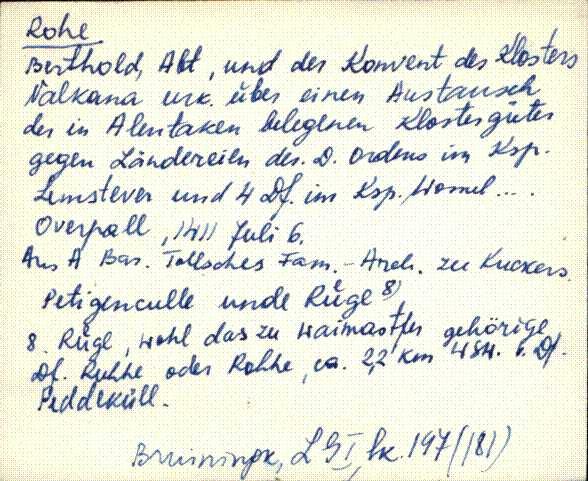 Rohe
Berthold, Abt, und der Konvent des Klosters
Valkana urk. über einen Austausch
der in Alentaken belegenen Klostergüter
gegen Ländereien des D. Ordens im Ksp.
und 4 Df. im Ksp. ....
Overpall, 1411 Juli 6.
Aus A Bar. Tollsches Fam.-Arch. zu Kuckers.
Petigenculle unde Rüge 8)
8. Rüge, wohl das zu Waimastfer gehörige
Df. Ruhhe oder Rohhe, ca. 2,2 km WSW. v. Df.
Peddeküll.
Bruiningk, LGI, 197 (181)